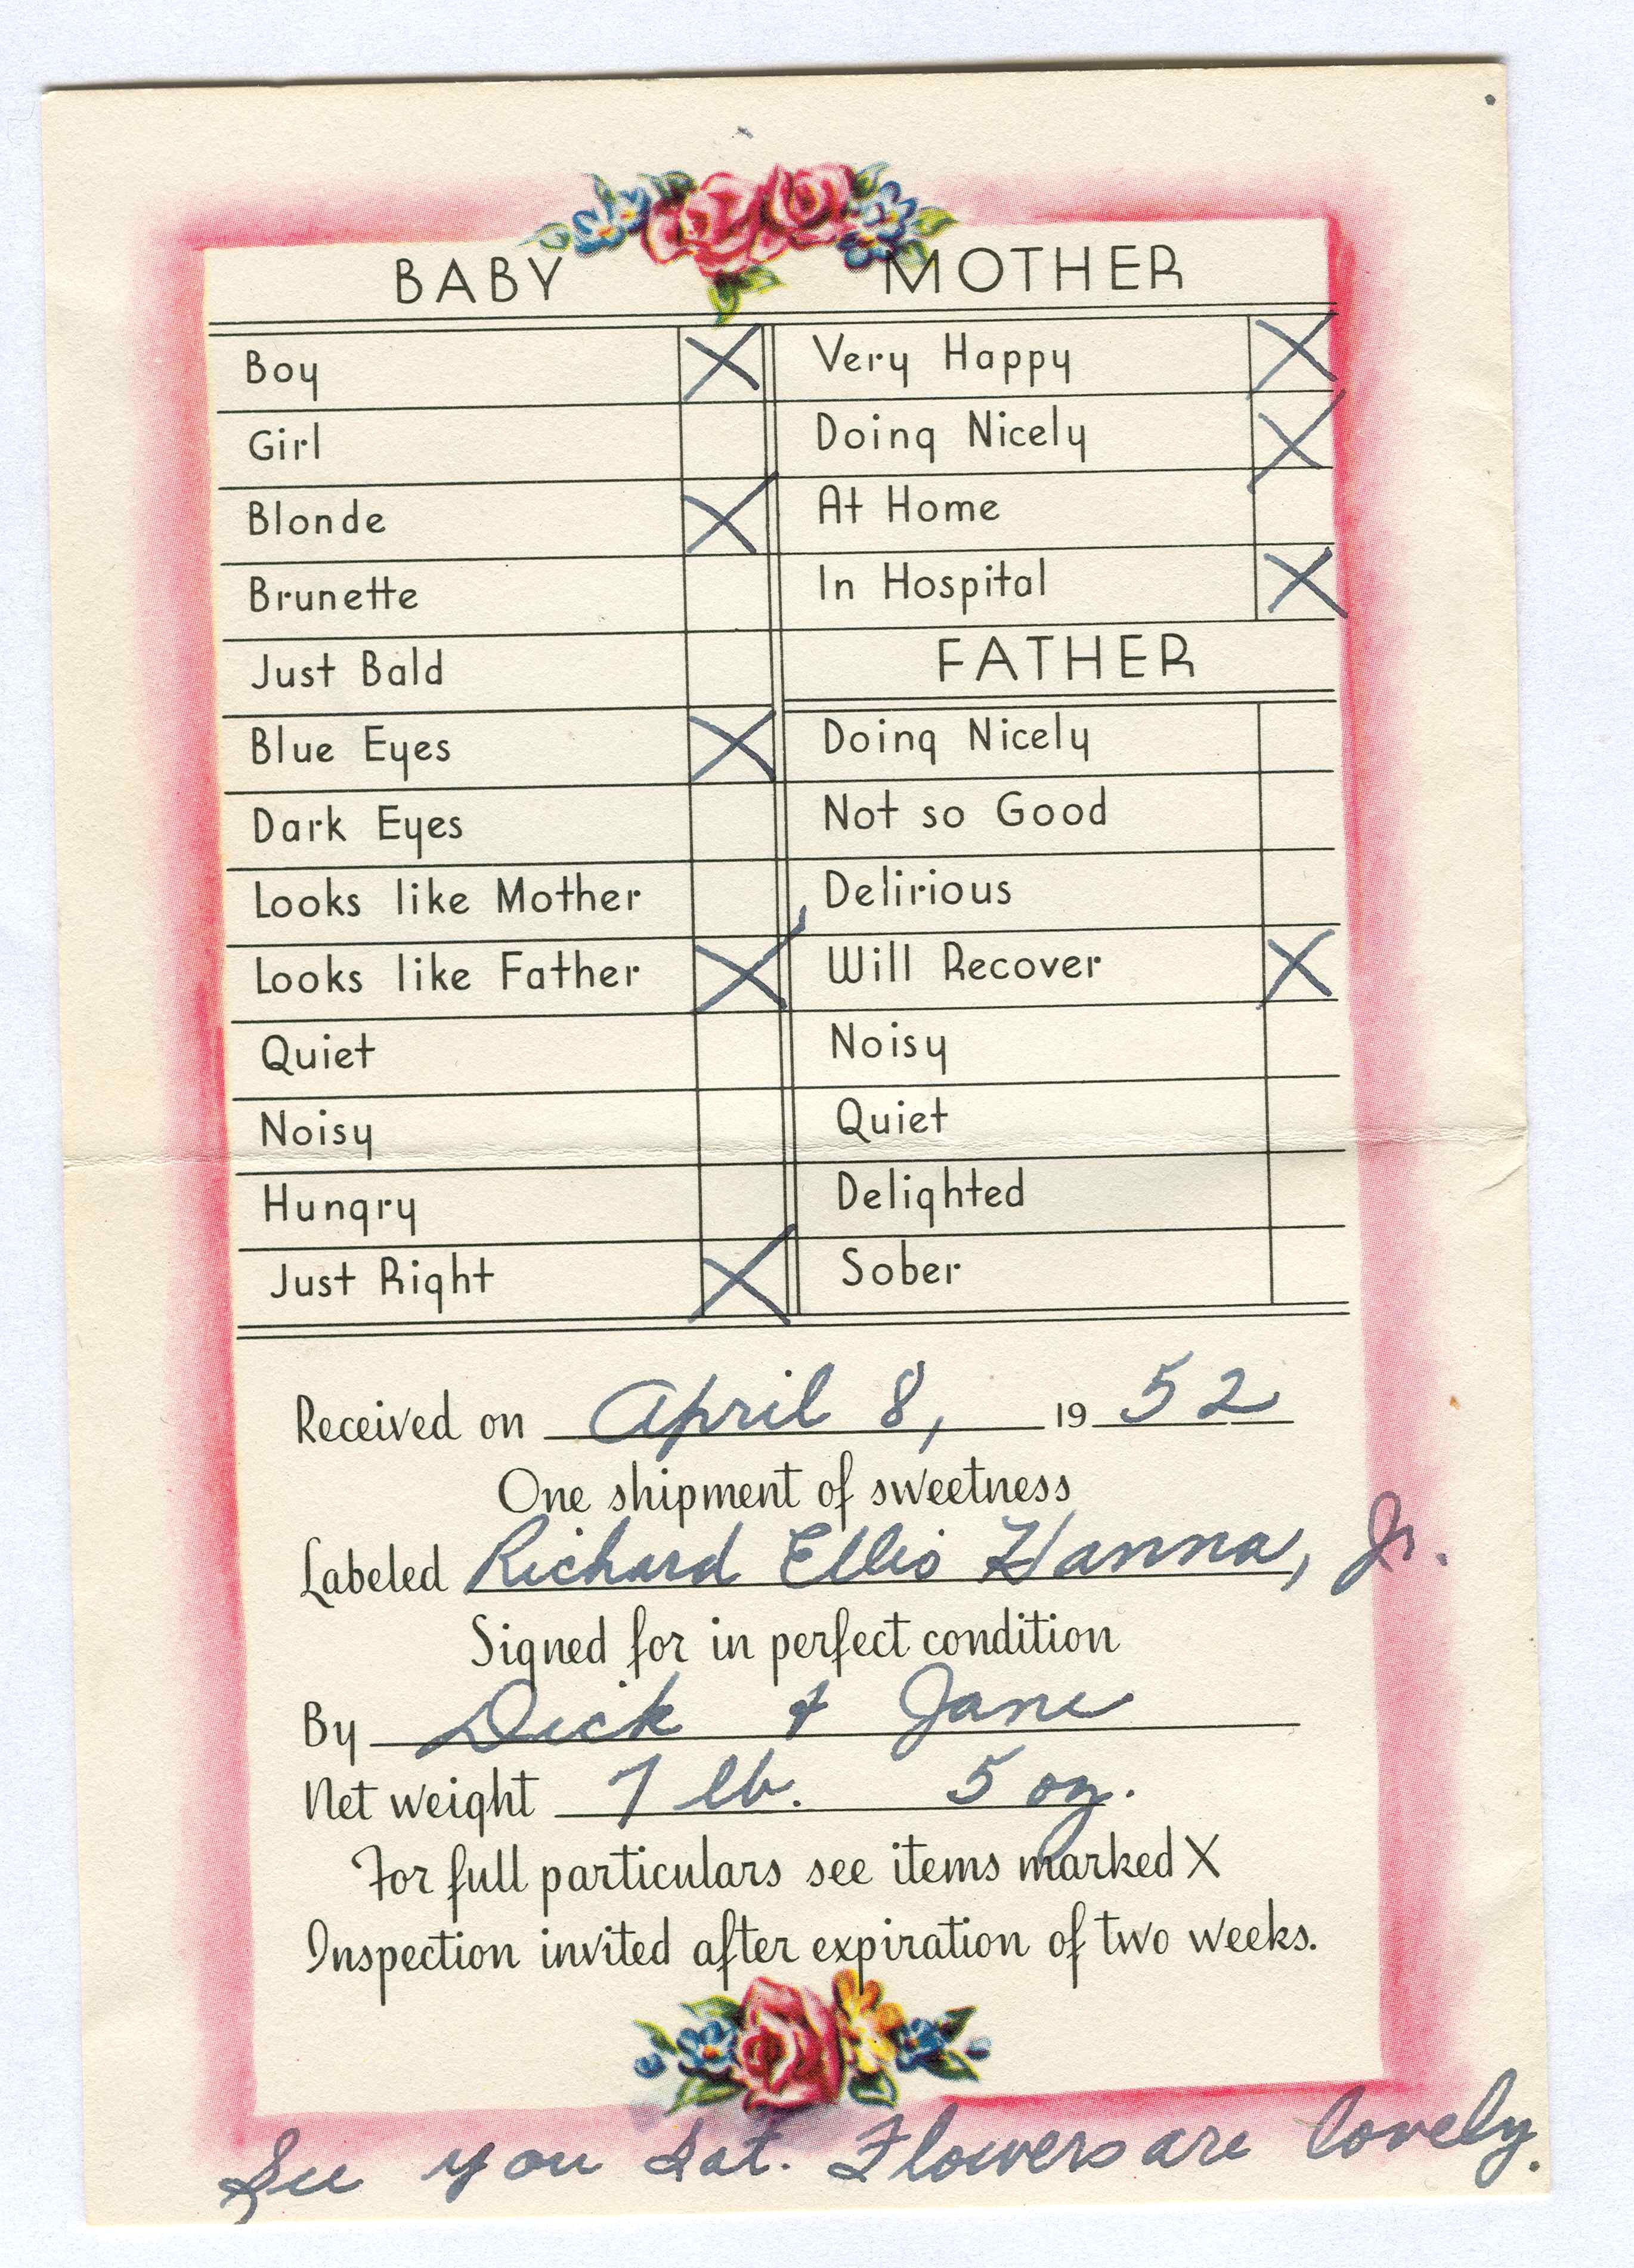 BABY MOTHER
Boy X Very Happy X
Girl Doing Nicely X
Blonde X At Home
Brunette In Hospital X
Just Bald FATHER
Blue Eyes X Doing Nicely
Dark Eyes Not so Good
Looks like Mother Delirious
Looks like Father X Will Recover X
Quiet Noisy
Noisy Quiet
Hungry Delighted
Just Right X Sober
Received on April 8, 1952
One shipment of sweetness
Labeled Richard Ellis Hanna, Jr.
Signed for in perfect condition
By Dick & Jane
Net weight 7 lb. 5 oz.
For full particulars see items marked X
Inspection invited after expiration of two weeks.
See you Sat. Flowers are lovely.